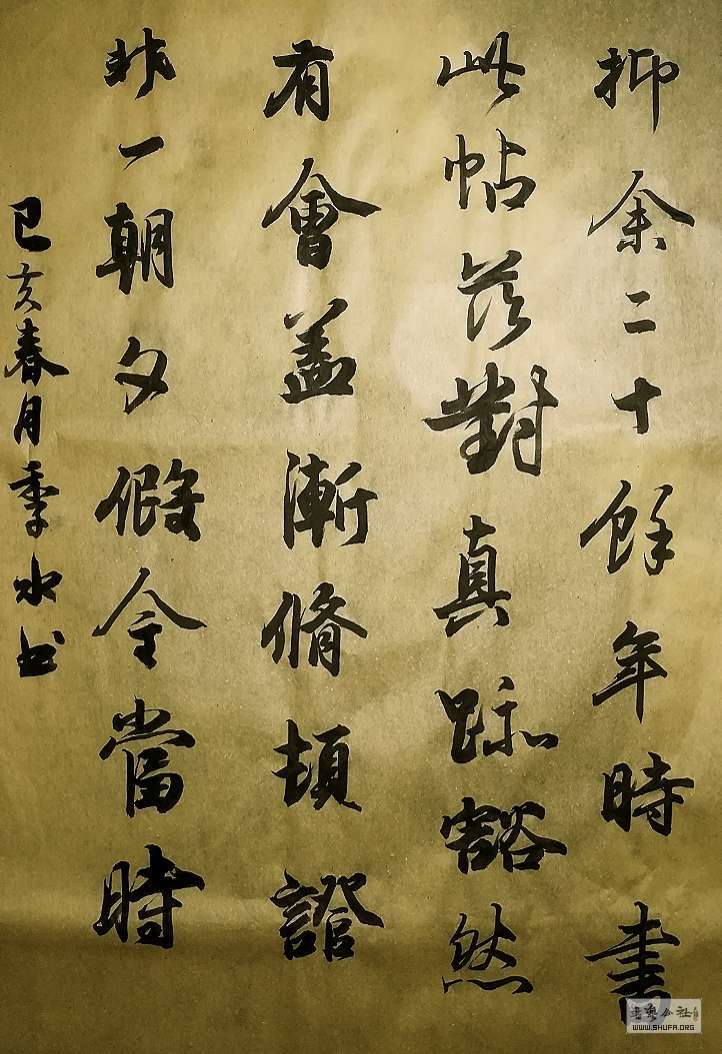 抑余二十餘年時書
此帖茲對真跡豁然
有會蓋漸脩頓證
非一朝夕假令當時
己亥春月季水書
書藝公社
WWW.SHUFA.ORG